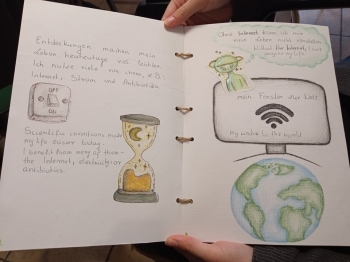 Entdeckungen machen mein
Leben heutzutage viel leichter.
Ich nutze viele von ihnen, z.B.
Internet, Strom und Antibiotika.
OFF
ON
Scientific inventions make
my life easier today.
I benefit from many of them -
the Internet, electricity or
antibiotics.
Ohne Internet kann ich mir
mein Leben nicht vorstellen.
Without the Internet, I can't
imagine my life.
mein Fenster zur Welt
my window to the world